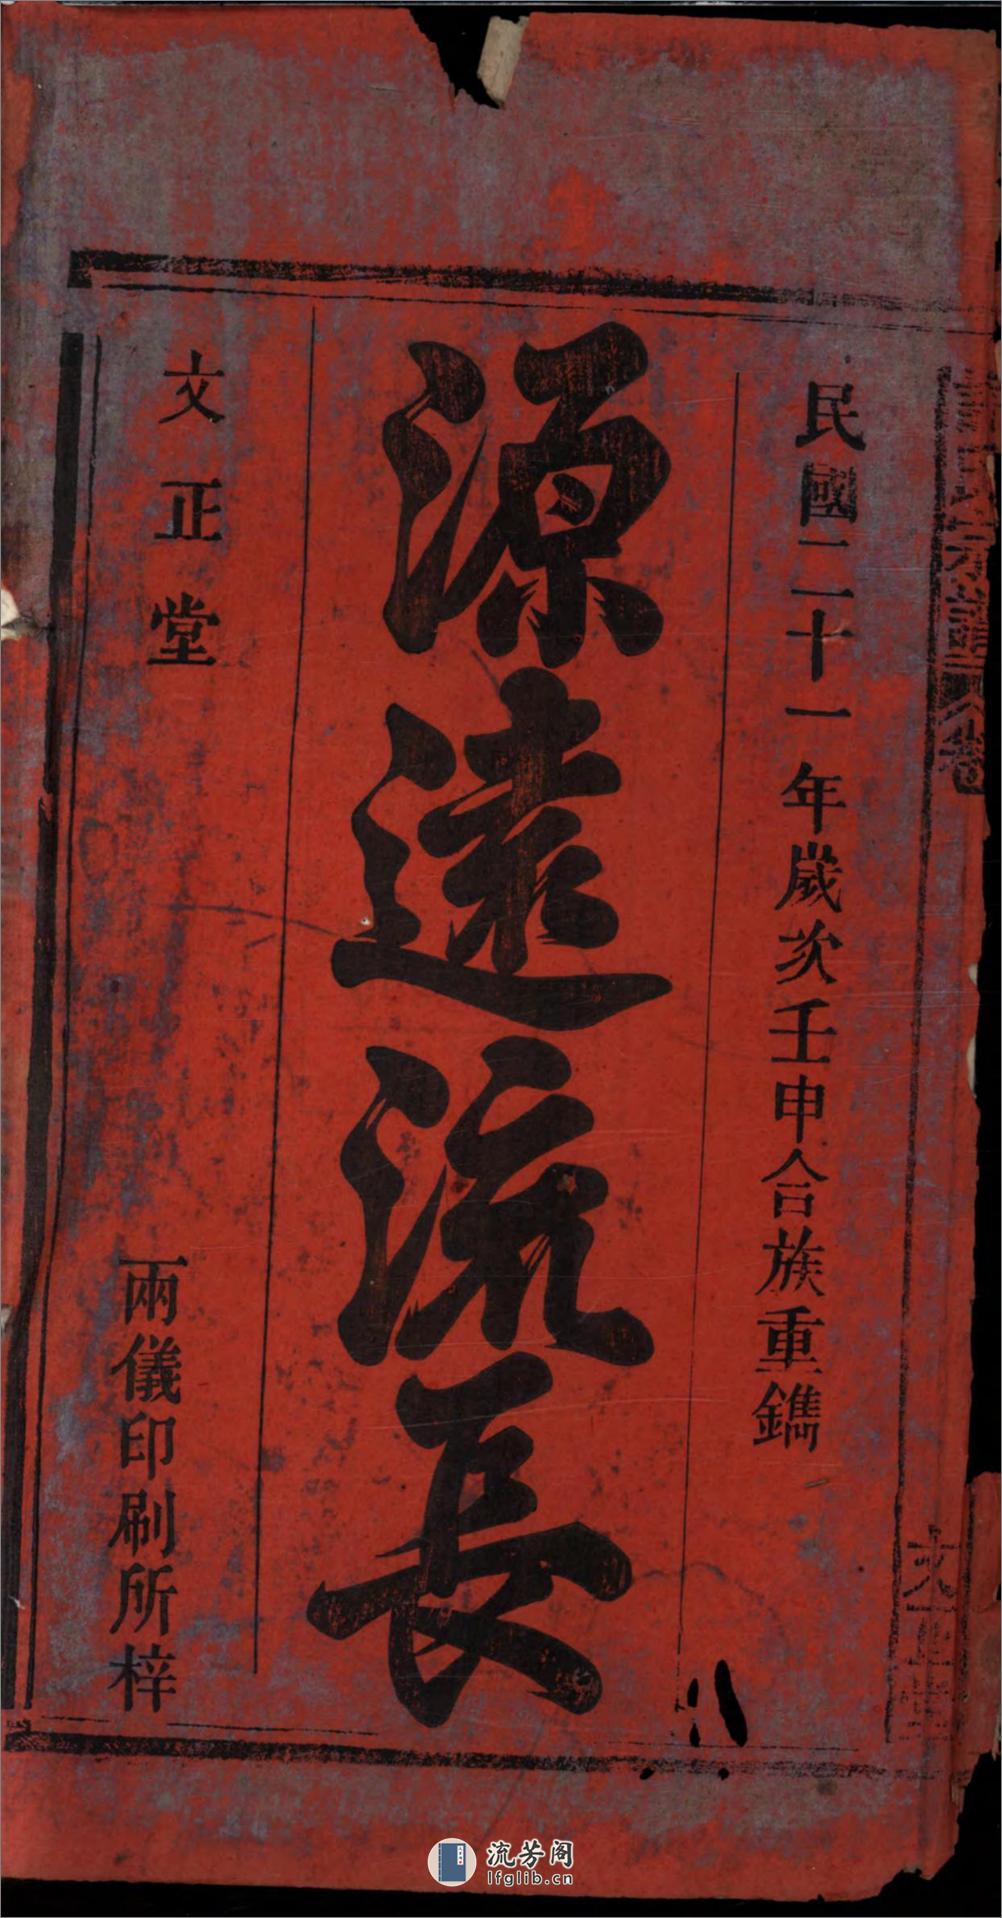 民國二十一年歲次壬申合族重鐫
源遠流長
文正堂
兩儀印刷所梓
流芳阁
lfglib.cn